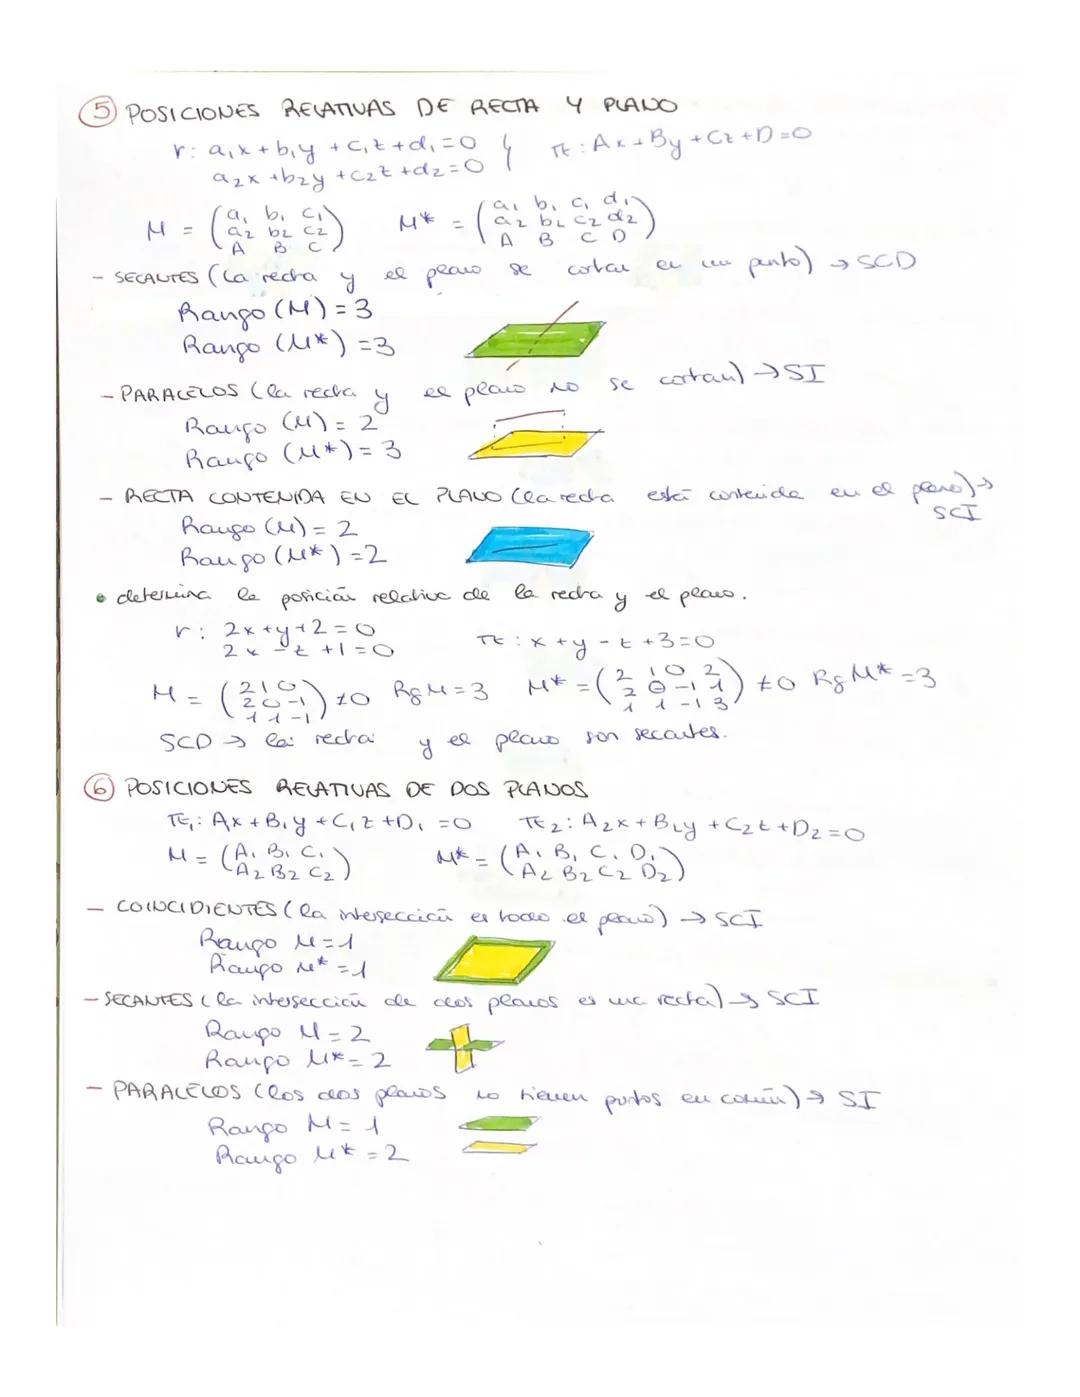 5 POSICIONES RELATIVAS DE RECTA Y PLANO
r: a₁x + b₁y + c₁z + d₁ = 0 } π: Ax + By + Cz + D = 0
a₂x + b₂y + c₂z + d₂ = 0
M = (a₁ b₁ c₁ / a₂ b₂ c₂ / A B C) M* = (a₁ b₁ c₁ d₁ / a₂ b₂ c₂ d₂ / A B C D)
- SECANTES (la recta y el plano se cortan en un punto) → SCD
Rango (M) = 3
Rango (M*) = 3
- PARALELOS (la recta y el plano no se cortan) → SI
Rango (M) = 2
Rango (M*) = 3
- RECTA CONTENIDA EN EL PLANO (la recta está contenida en el plano) →
SCI
Rango (M) = 2
Rango (M*) = 2
• determina la posición relativa de la recta y el plano.
r: 2x + y + 2 = 0 π: x + y - z + 3 = 0
2x - z + 1 = 0
M = (2 1 0 / 2 0 -1 / 1 1 -1) ≠ 0 Rg M = 3 M* = (2 1 0 2 / 2 0 -1 1 / 1 1 -1 3) ≠ 0 Rg M* = 3
SCD → la recta y el plano son secantes.
6 POSICIONES RELATIVAS DE DOS PLANOS
π₁: Ax + B₁y + C₁z + D₁ = 0 π₂: A₂x + B₂y + C₂z + D₂ = 0
M = (A₁ B₁ C₁ / A₂ B₂ C₂) M* = (A₁ B₁ C₁ D₁ / A₂ B₂ C₂ D₂)
- COINCIDIENTES (la intersección es todo el plano) → SCI
Rango M = 1
Rango M* = 1
- SECANTES (la intersección de dos planos es una recta) → SCI
Rango M = 2
Rango M* = 2
- PARALELOS (los dos planos no tienen puntos en común) → SI
Rango M = 1
Rango M* = 2